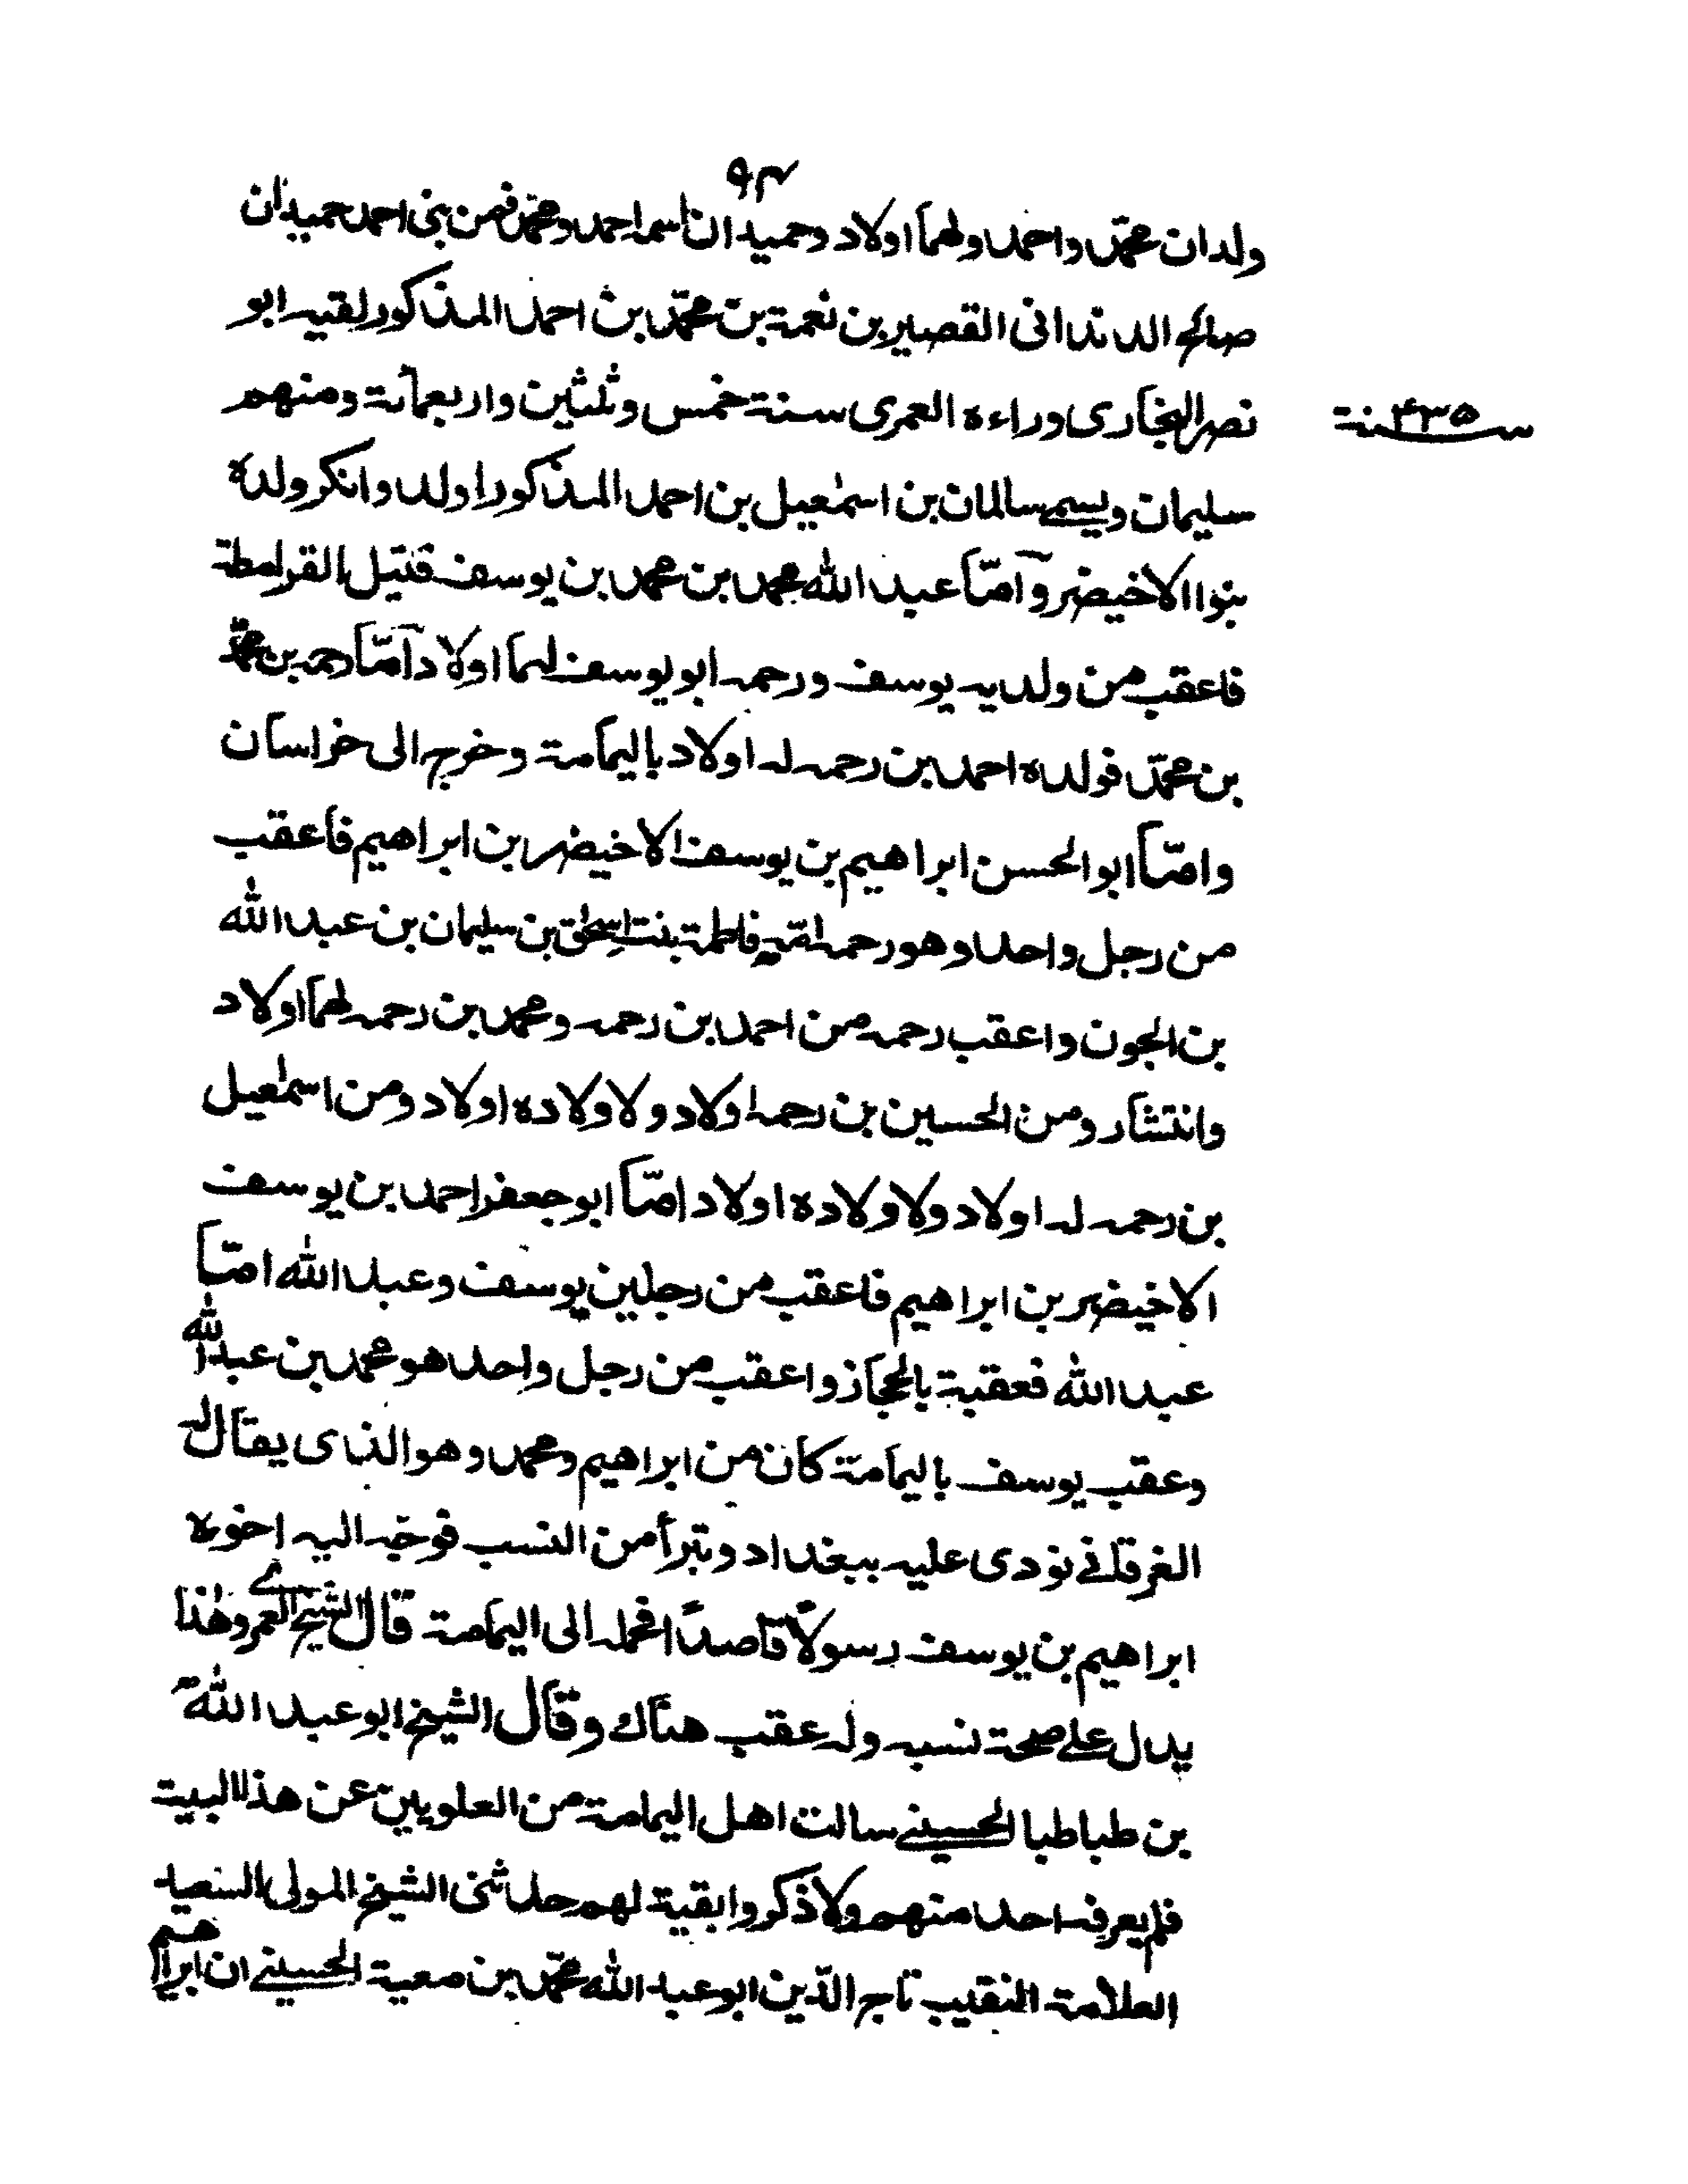 ٩٣
ولدان محمّد واحمد ولهما اولاد وحميدان اسمه احمد ومحمّد فمن بنى احمد حميدان
صالح الدندانى القصير بن نعمة بن محمّد بن احمد المذكور لقيه ابو
نصر البخارى وراءه العمرى سنة خمس وثلثين واربعمائة ومنهم
سنة ۴۳۵
سليمان ويسمى سالمان بن اسمٰعيل بن احمد المذكور اولد وانكر ولده
بنوا الاخيضر وآمّا عبد الله محمد بن محمد بن يوسف قتيل القرامطة
فاعقب من ولديه يوسف ورحمه ابو يوسف لهما اولاد آمّا رحمه بن محمّد
بن محمّد فولده احمد بن رحمه له اولاد باليمامة وخرج الى خراسان
وامّا ابو الحسن ابراهيم بن يوسف الاخيضر بن ابراهيم فاعقب
من رجل واحد وهو رحمه امّه فاطمة بنت اسحٰق بن سليمان بن عبد الله
بن الجون واعقب رحمه من احمد بن رحمه ومحمد بن رحمه لهما اولاد
وانتشار ومن الحسين بن رحمه اولاد ولاولاده اولاد ومن اسمٰعيل
بن رحمه له اولاد ولاولاده اولاد امّا ابو جعفر احمد بن يوسف
الاخيضر بن ابراهيم فاعقب من رجلين يوسف وعبد الله امّا
عبد الله فعقبة بالحجاز واعقب من رجل واحد هو محمد بن عبد الله
وعقب يوسف باليمامة كان من ابراهيم ومحمد وهو الذى يقال له
الغرقانى نودى عليه ببغداد وتبرأ من النسب فوجّه اليه اخوه
ابراهيم بن يوسف رسولاً قاصداً فحمله الى اليمامة قال الشيخ العمرى وهٰذا
يدل على صحة نسبه وله عقب هناك وقال الشيخ ابو عبد الله
بن طباطبا الحسينى سالت اهل اليمامة من العلويين عن هذا البيت
فلم يعرف احد منهم ولا ذكروا بقية لهم حدثنى الشيخ المولى السعيد
العلامة النقيب تاج الدّين ابو عبد الله محمّد بن معية الحسينى ان ابراهيم